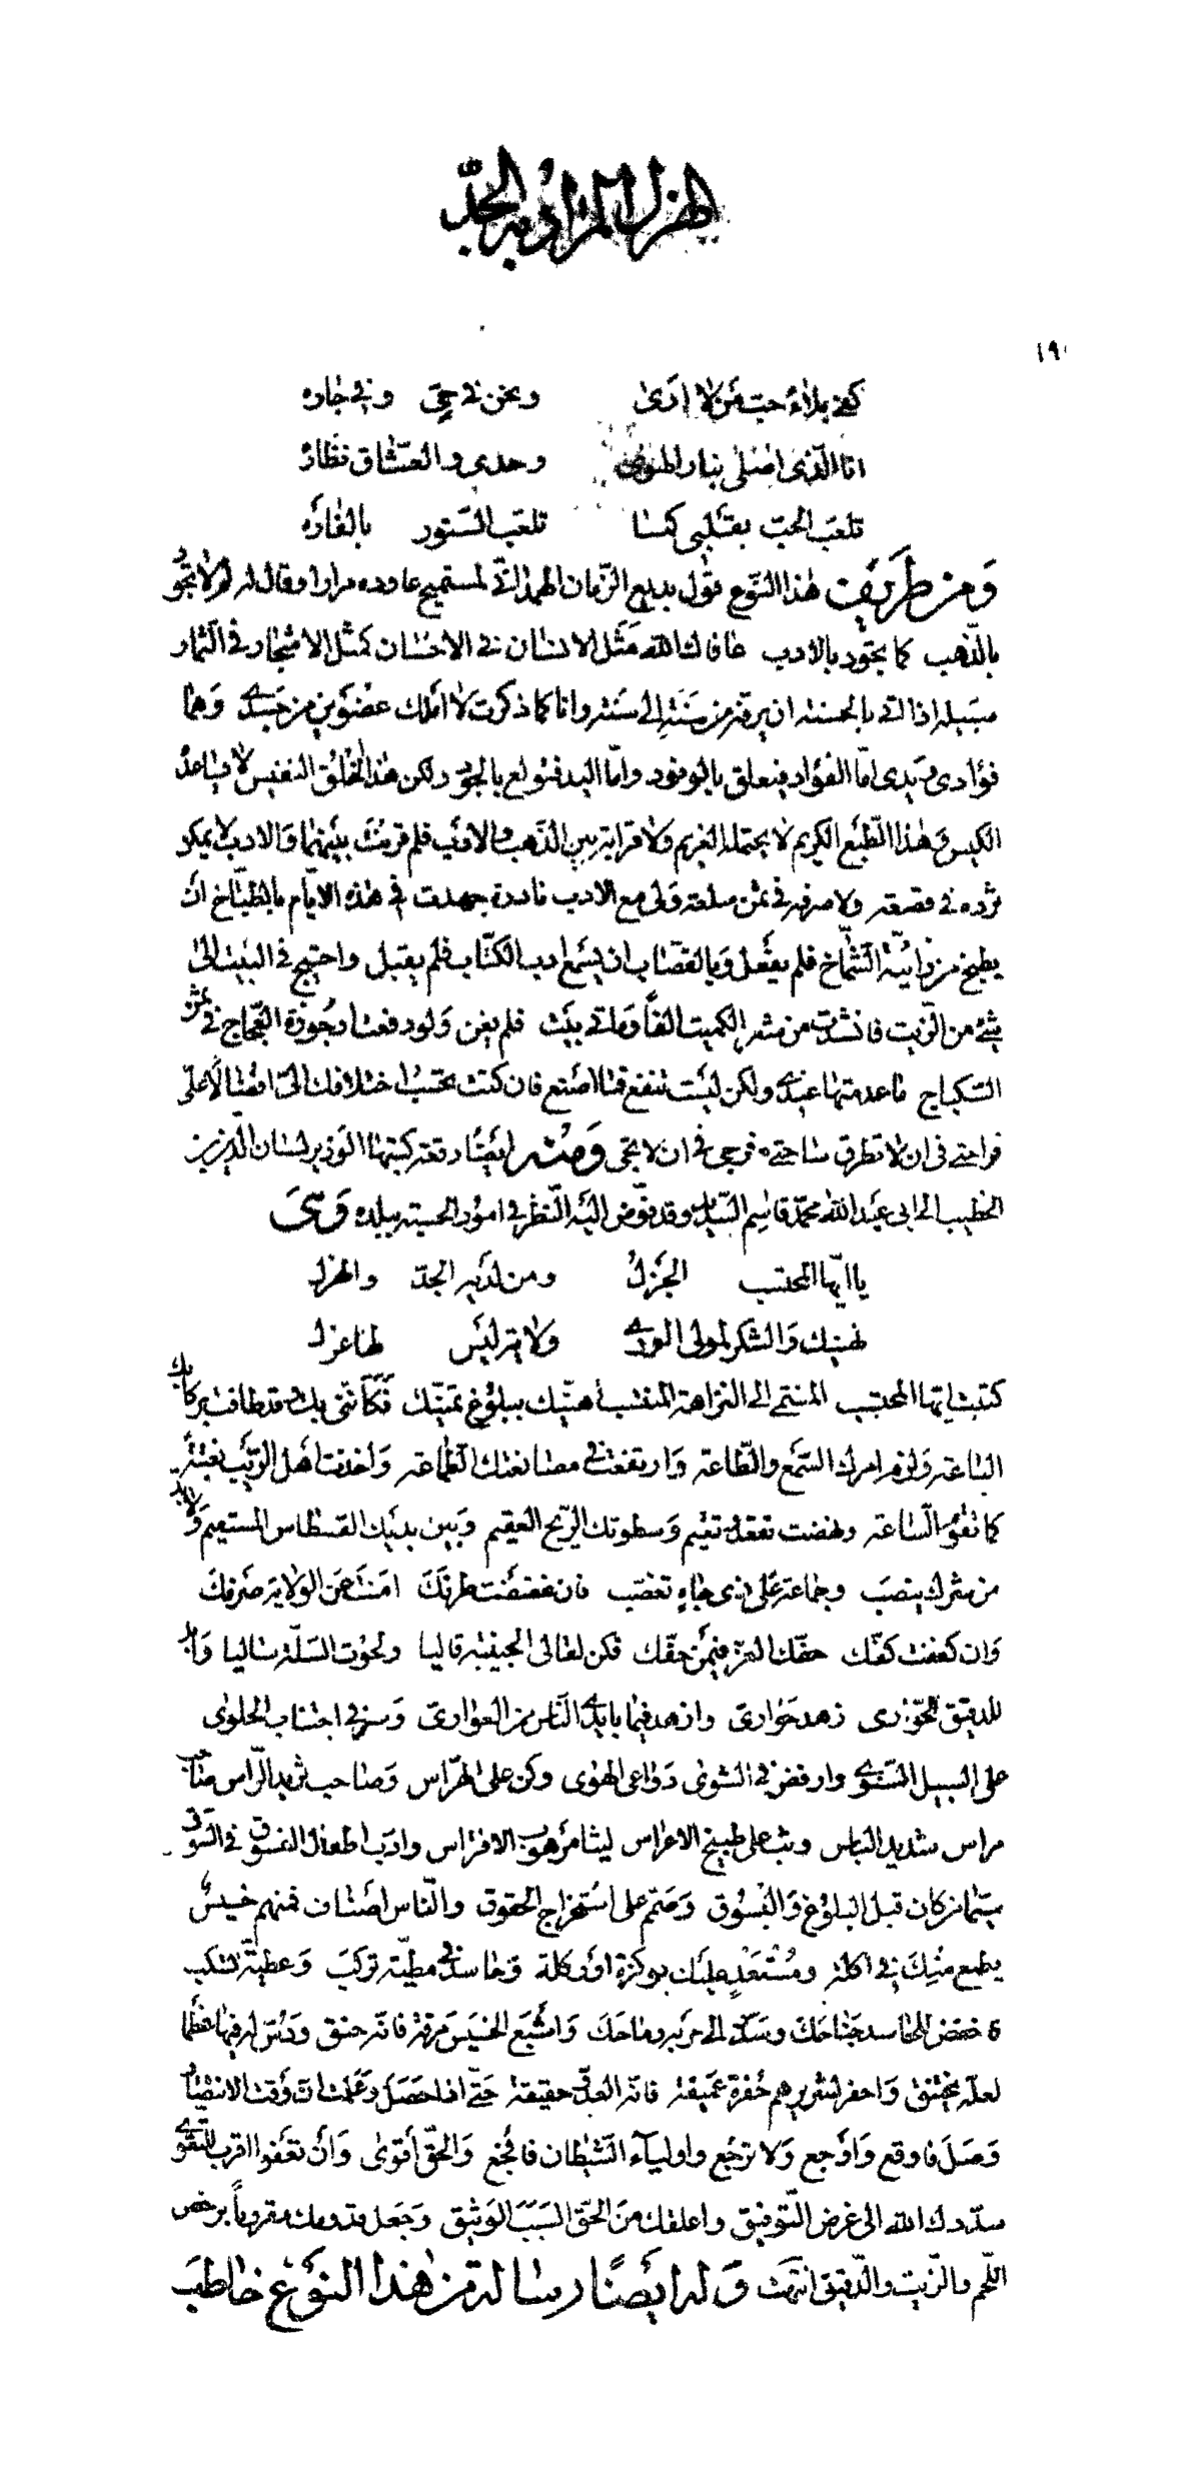 الهزل المراد به الجدّ
١٩٠
كفى بلاءً حبّ من لا ارَى ونحن فى حىّ وفى جاره
انا الّذى اصلى بنار الهوى وحدى والعشّاق نظّاره
تلعّب الحبّ بقلبى كما تلعّب السّنّور بالفاره
وَمن ظريف هٰذا النّوع قول بديع الزّمان الهمذانىّ لمستميح عاوده مرارا وقال له لم لا تجود
بالذّهب كما تجود بالادب عافاك الله مَثَل الانسان فى الاحسان كمثل الاشجار فى الثمار
سبيله اذا اتى بالحسنة ان يرفه من سَنَةٍ الى سَنة وانا كما ذكرت لا املك عضوَين من جسدى وَهما
فؤادى ويَدى امّا الفؤاد فيعلق بالوفود وامّا اليد فتولع بالجود ولكن هٰذا الخُلُق النفيس لا يساعدُ
الكيس وهٰذا الطّبع الكريم لا يحتمله الغريم ولا قرابة بين الذّهب والادَب فلم قرنتَ بينهمَا وَالادب لا يمكن
ثرده فى قصعة ولا صرفه فى ثمن سلعة وَلى مع الادب نادرة جهدت فى هٰذه الايّام بالطّبّاخ ان
يطبخ من زائيّة الشّمّاخ فلم يفعل وَبالقصّاب ان يسمع ادب الكتّاب فلم يقبل واحتيج فى البيت الىٰ
شئ من الزّيت فانشدت من شعر الكميت الفاً ومأتى بيت فلم يغن وَلو دفعت ارجوزة العجّاج فى ثمن
السّكباج ما عدمتها عندى ولكن ليست تنفع فما اصنع فان كنت تحتسب اختلافك الىّ افضالا علىّ
فراحتى فى ان لا تطرق ساحتى وفرجى فى ان لا تجى وَمنه ايضًا رقعة كتبها الوزير لسان الدّين بن
الخطيب الى ابى عبد الله محمّد قاسم الشّديد وقد فوّض اليه النّظر فى امور الحسبة ببلده وَهىَ
يا ايّها المحتسب الجَزلُ ومن لدَيه الجدّ والهزل
نهنيك وَالشكر لمولى الورى ولاية ليسَ لها عزل
كتبت ايّها المحتسب المنتمى الى النزاهة المنتسب أهنّيك ببلوغ تمنّيك فكأنّنى بك وقد طافت بركابك
الباعة وَلزم امرك السّمع والطّاعة وَارتفعت فى مصانعتك الطّماعة وَاخذت اهل الرّيَب بغتة
كما تقوم السّاعة ونهضت تقعد وتقيم وَسطوتك الرّيح العقيم وَبين يديك القسطاس المستقيم وَلا بد
من شرك ينصب وجماعة عَلى ذى جاهٍ تعصّب فان غضضت طرفك امنت عَن الولاية صَرفك
وَان كففت كفّك حفّك العزّ فيمَن حفّك فكن لقالى الجبنة قاليا ولحوت السّلّة ساليا وَابد
للدقيق الحوّارى زهد حَوارىّ وازهد فيما بايدى النّاس من العوارىّ وَسر فى اجتناب الحلوىٰ
على السبيل السّوى وارفض فى الشوى دَواعى الهوى وكن على الهرّاس وَصاحب ثريد الرّاس صَاحب
مراس شديد الباس وثب على طبيخ الاعراس ليثا مَرهوب الافتراس وادّب اطفال الفسوق فى السّوق
سيّما من كان قبل البلوغ وَالبُسُوق وَصَمّم على استخراج الحقوق والنّاس اصناف فمنهم خسِيسٌ
يطمع منك فى اكلة ومُسْتَعْدٍ عليك بوكزة او ركلة وَحاسد فى مطيّة تركب وَعطيّة تسكب
فاخفض للحاسد جناحَك وسدّد الى حربه رماحَك وَاشبع الخسيسَ مرقة فانّه حنق ودسّ له فيها عظما
لعلّه يختنق وَاحفر لشريرهم حُفرة عميقة فانّه العدوّ حقيقة حَتّى اذا حصَل وَعَلمت انّ وَقت الانتصار
وَصَل فاوقع وَاوجع وَلا ترجع واولياَء الشّيطان فافجع وَالحقّ أقوىٰ وَانْ تعفوا اقرب للتّقوىٰ
سدّدك الله الى غرض التّوفيق واعلقك منَ الحقّ السّبب الوَثيق وَجَعل قدومك مقروناً برخص
اللّحم والزّيت والدّقيق انتهت وَله ايضًا رسالة من هٰذا النوع خاطبَ